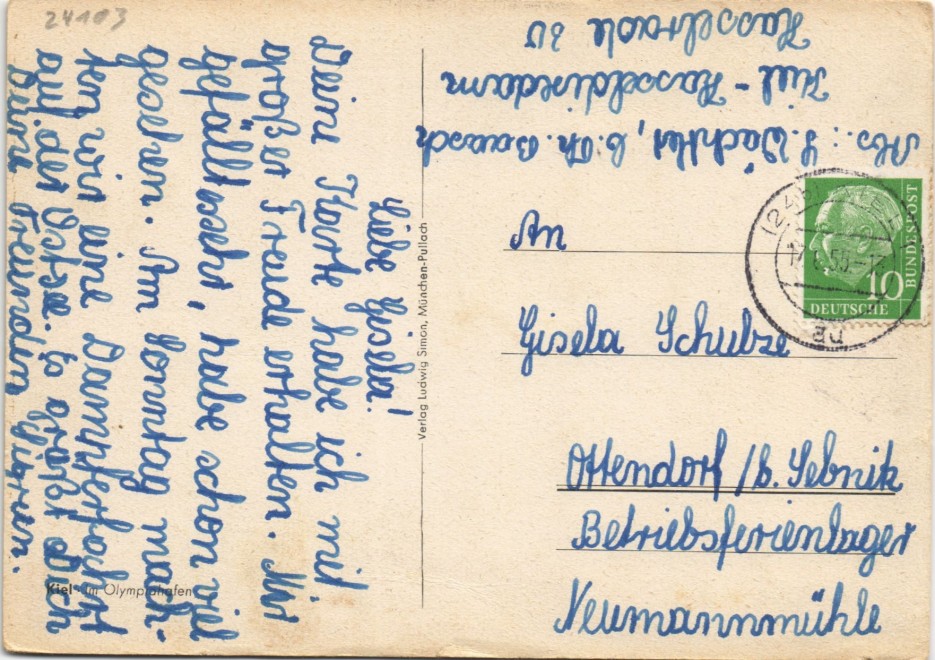 24103
Liebe Gisela!
Deine Karte habe ich mit
großer Freude erhalten. Mir
gefällt es sehr, habe schon viel
gesehen. Am Sonntag mach-
ten wir eine Dampferfahrt
auf der Ostsee. Es grüßt dich
deine Freundin
Kiel - Im Olympiahafen
Verlag Ludwig Simon, München-Pullach
Abs.: S. Wächtler, b. Th.
Kiel - Hasseldieksdam
Hasselrade 30
DEUTSCHE
BUNDESPOST
10
An
Gisela Schulze
Ottendorf /b. Sebnitz
Betriebsferienlager
Neumannmühle